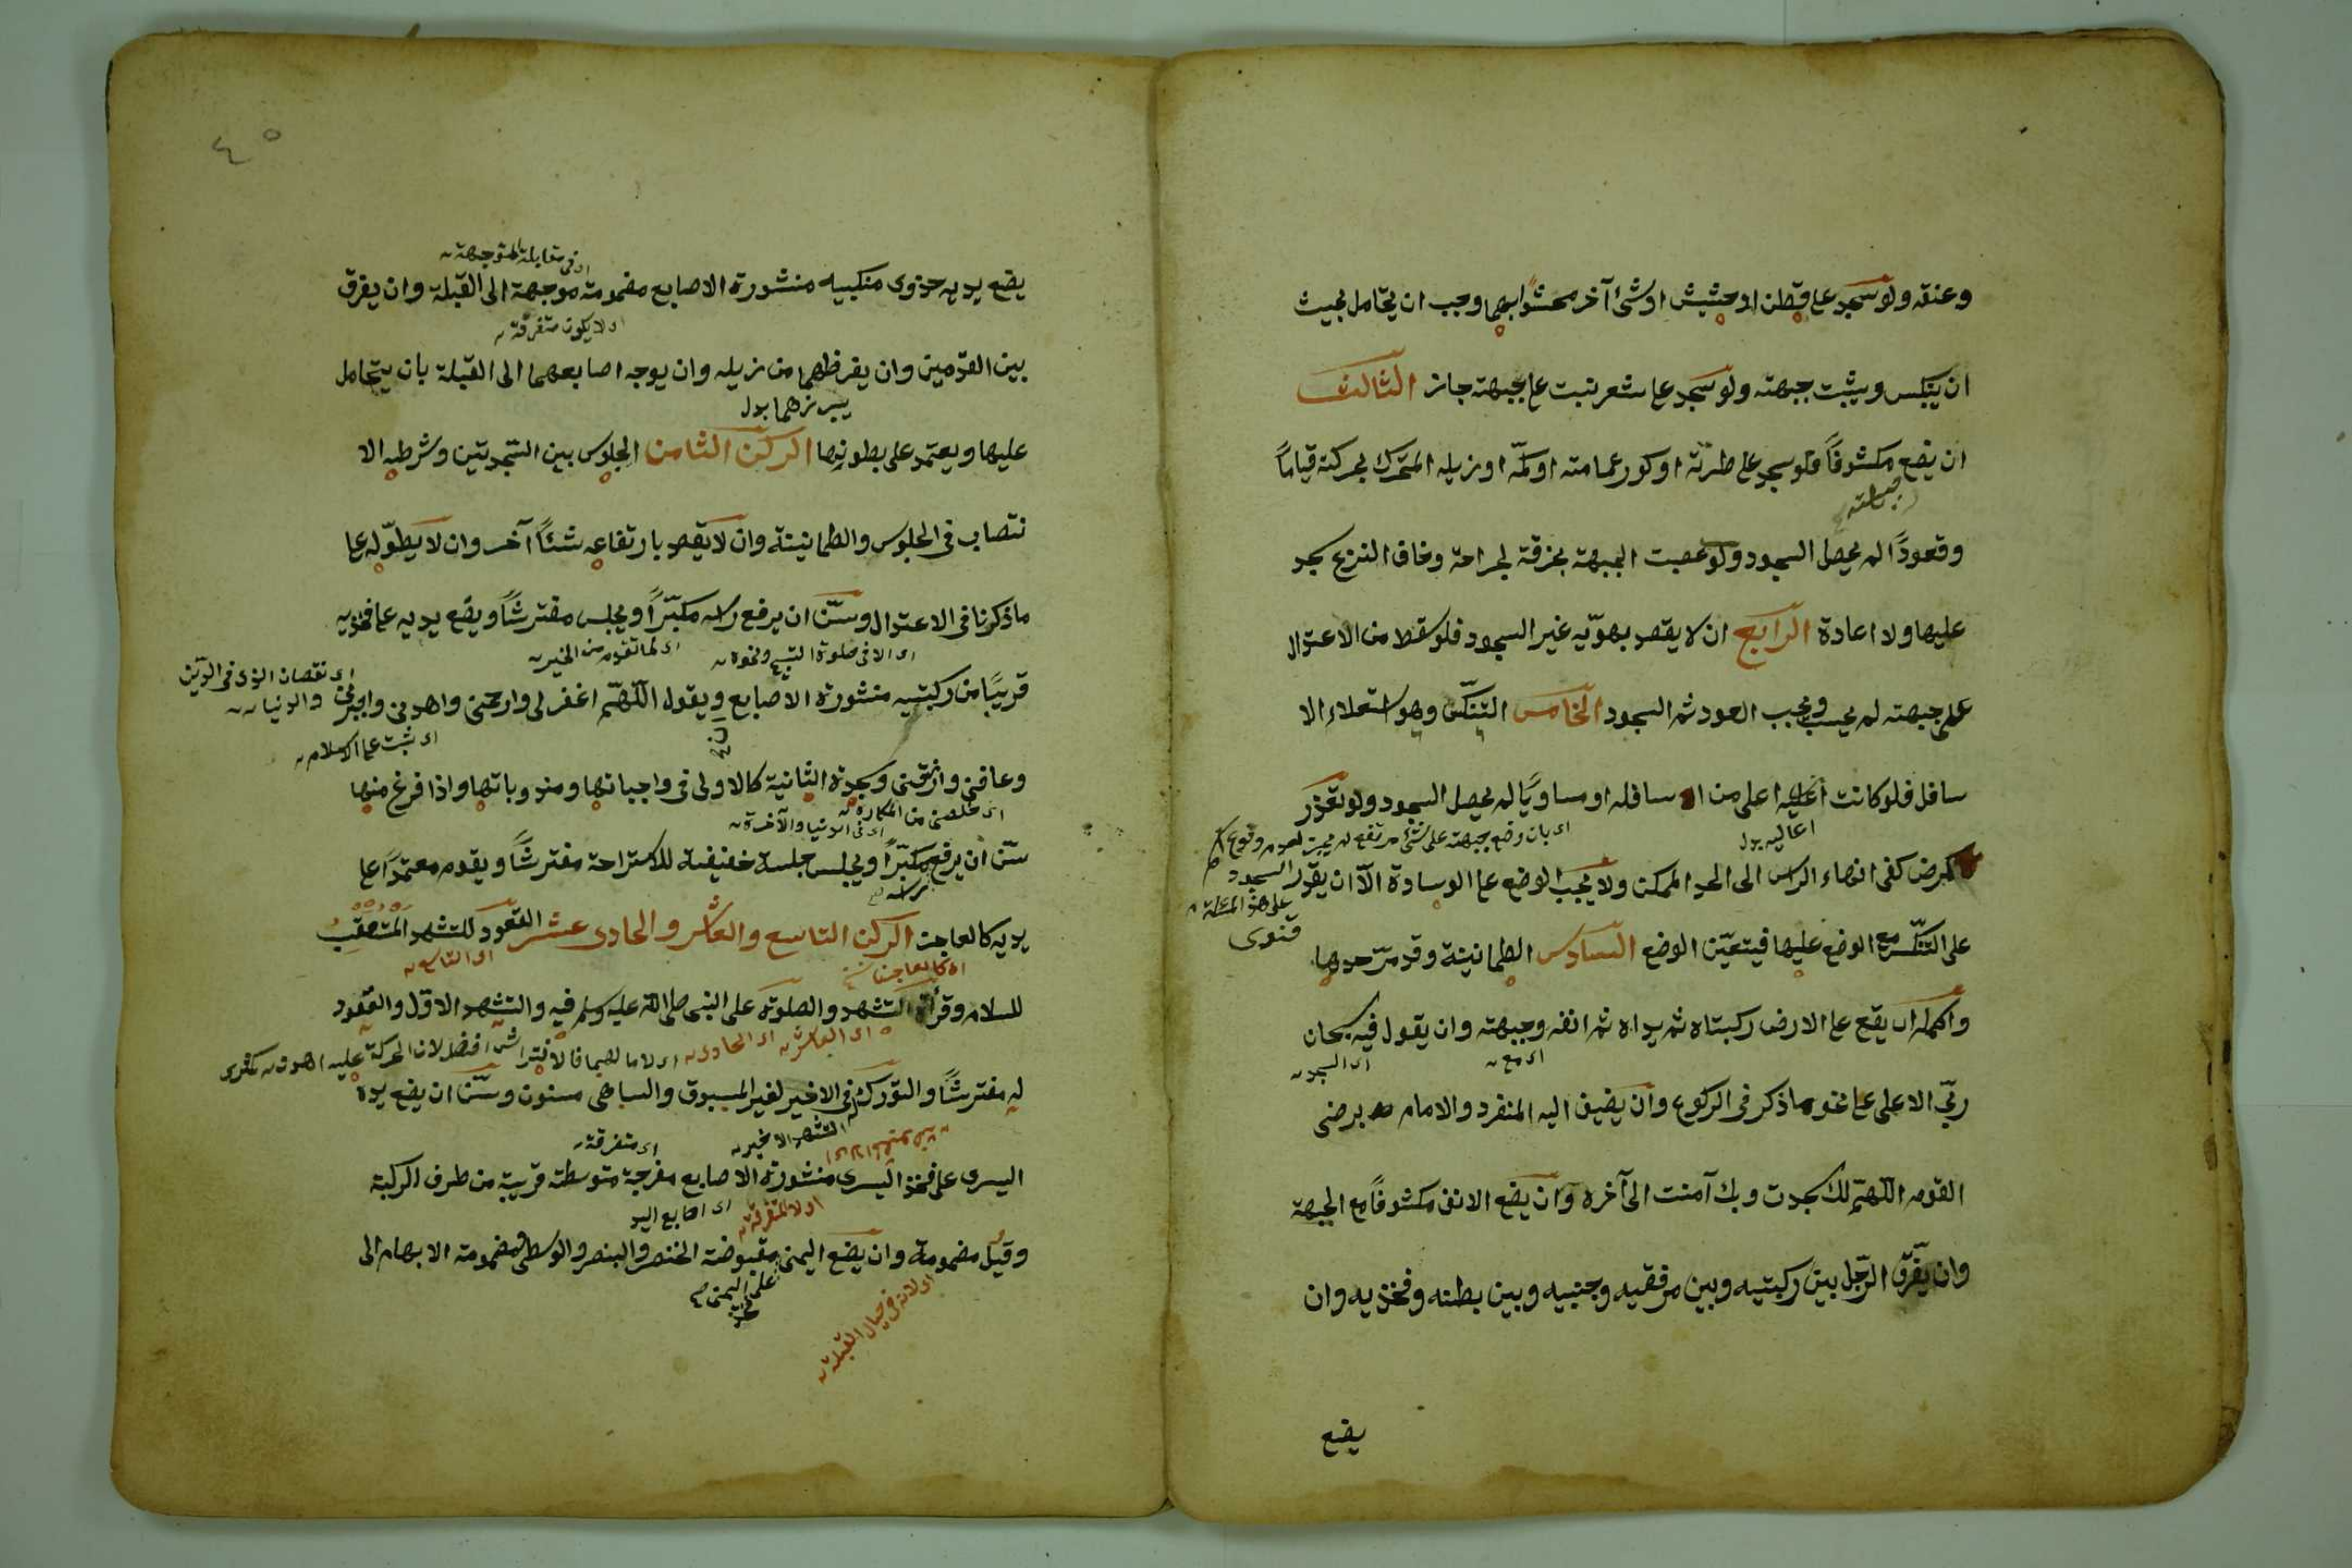 وعنقه ولو سجد على قطن او حشيش او شئ آخر محشوا بهما وجب ان يتحامل بحيث
ان ينكبس ويثبت جبهته ولو سجد على شعر نبت على جبهته جاز الثالث
ان يضع مكشوفاً فلو سجد على طرته او كور عمامته او كمّه او ذيله المتحرك بحركته قياماً
وقعوداً لم يحصل السجود ولو عصبت الجبهة بخرقة لجراحة وخاف النزع سجد
عليها ولا اعادة الرابع ان لا يقصد بهويّه غير السجود فلو سقط من الاعتدال
على جبهته لم يحسب ويجب العود ثم السجود الخامس التنكّس وهو استعلاء الا
سافل فلو كانت اعاليه اعلى من اسافله او مساويًا لم يحصل السجود ولو تعذر
اعاليه بدل
اى بان وضع جبهته على شئ مرتفع لم يجب لعدم وقوع
لمرض كفى انحناء الراس الى الحد الممكن ولا يجب الوضع على الوسادة الّا ان يقدر
السجود
على هذه المسئلة
فتوى
على التنكّس مع الوضع عليها فيتعيّن الوضع السادس الطمانينة وقد مرّ حدها
واكمله ان يقع على الارض ركبتاه ثم يداه ثم انفه وجبهته وان يقول فيه سبحان
اى مع
اى السجود
ربّى الاعلى على نحو ما ذكر في الركوع وان يضيف اليه المنفرد والامام برضى
القوم اللّهمّ لك سجدت وبك آمنت الى آخره وان يضع الانف مكشوفاً مع الجبهة
وان يفرّق الرّجل بين ركبتيه وبين مرفقيه وجنبيه وبين بطنه وفخذيه وان
يضع
٤٥
اى في مقابلة
يضع يديه حذوى منكبيه منشورة الاصابع مضمومة موجهة الى القبلة وان يفرق
اى لا يكون متفرقة
بين القدمين وان يفرظهما من ذيله وان يوجه اصابعهما الى القبلة بان يتحامل
يبرزهما بدل
عليها ويعتمد على بطونها الركن الثامن الجلوس بين السّجدتين وشرطه الا
نتصاب في الجلوس والطمانينة وان لا يقصد بارتفاعه شئاً آخر وان لا يطوّله على
ما ذكرنا في الاعتدال وسنّ ان يرفع راسه مكبّراً ويجلس مفترشاً ويضع يديه على فخذيه
اى الا في صلوة التسبيح ونحوه
اى لما تقدم من الخبر
قريبًا من ركبتيه منشورة الاصابع ويقول اللّهمّ اغفر لى وارحمنى واهدنى واجبرنى
اى نقصان الذى في الدّين
والدنيا
اى ثبت على الاسلام
وعافنى وارزقنى وسجدة الثانية كالاولى في واجباتها ومندوباتها واذا فرغ منها
اى خلصنى من المكاره
اى في الدنيا والآخرة
سنّ ان يرفع مكبّراً ويجلس جلسة خفيفة للاستراحة مفترشاً ويقوم معتمدا على
راسه
يديه كالعاجن الركن التاسع والعاشر والحادى عشر القعود للتشهد المتعقب
اى كالعاجن
اى التاسع
للسلام وقرأة التشهد والصلوة على النبى صلى الله عليه وسلم فيه والتشهد الاوّل والقعود
اى العاشر
اى الحادى
له مفترشاً والتورك في الاخير لغير المسبوق والساهى مسنون وسنّ ان يضع يده
التشهد الاخير
اى متفرقة
اليسرى على فخذ اليسرى منشورة الاصابع مفرجة متوسطة قريبة من طرف الركبة
اى اصابع اليد
وقيل مضمومة وان يضع اليمنى مقبوضة الخنصر والبنصر والوسطى مضمومة الابهام الى
على
فخذ
اليمنى